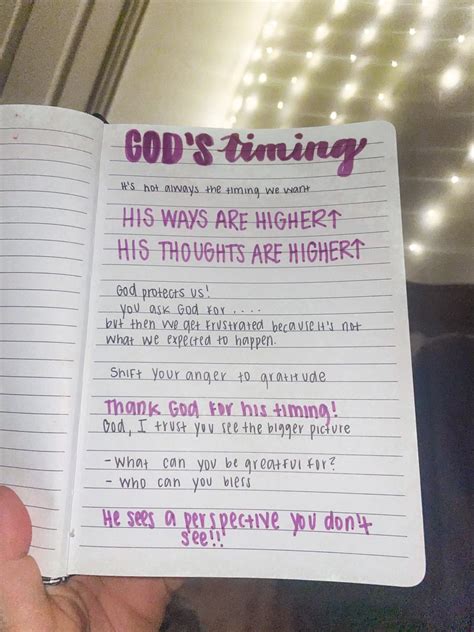 GOD'S timing
It's not always the timing we want
HIS WAYS ARE HIGHER↑
HIS THOUGHTS ARE HIGHER↑
God protects us!
you ask God for ....
but then we get frustrated because it's not
what we expected to happen.
Shift your anger to gratitude
Thank God for his timing!
God, I trust you see the bigger picture
- What can you be greatful for?
- Who can you bless
He sees a perspective you don't
see!!